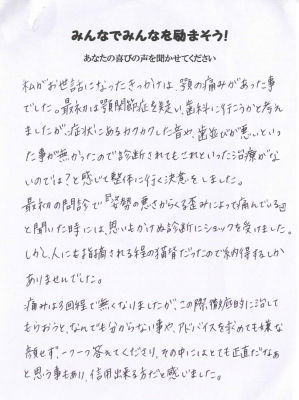 みんなでみんなを励まそう!
あなたの喜びの声を聞かせてください
私がお世話になったきっかけは、顎の痛みがあった事
でした。最初は顎関節症を疑い、歯科に行こうかと考え
ましたが、症状にあるカクカクした音や、歯並びが悪いといっ
た事が無かったので診断されてもこれといった治療がな
いのでは?と感じて整体に行く決意をしました。
最初の問診で『姿勢の悪さからくる歪みによって痛んでいる』
と聞いた時には、思いもかけぬ診断にショックを受けました。
しかし、人にも指摘される程の猫背だったので納得するしか
ありませんでした。
痛みは3回程で無くなりましたが、この際、徹底的に治して
もらおうと、なんでも分からない事や、アドバイスを求めても嫌な
顔せず、一つ一つ答えてくださり、その中にはとても正直だなぁ
と思う事もあり、信用出来る方だと感じました。